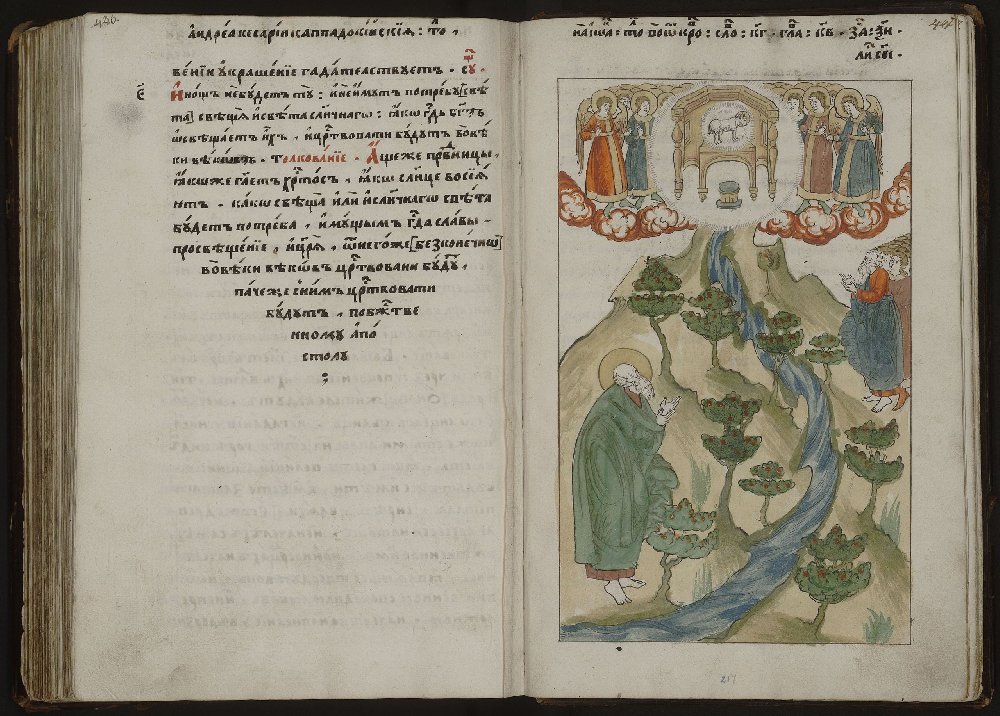 420.
андреа кесаріи каппадокійскія : то
веніи украшеніе гадателствуетъ . су
є҃ И нощь небудетъ ту : инеимутъ потребу [свѣ
та] свѣщя исвѣта слнчнаго : ꙗкѡ гдь бгъ
ѡсвѣщаетъ ихъ , ицртвовати будутъ вовѣ
ки вѣкѡвъ . Толкованїе . Ащеже првдницы ,
ꙗкѡже глетъ хртосъ , ꙗкѡ слнце восїꙗ
ютъ . какѡ свѣща или слнчнаго свѣта
будетъ потреба , имущымъ гда славы
просвѣщенїе , ицрѧ , ѿнегоже [безконечнѡ]
вовѣки вѣкѡвъ цртвовани будутъ ,
паче же снимъ цртвовати
будутъ , побжтве
нному апо
столу
сло : кд глa : кв за : ѯи
217